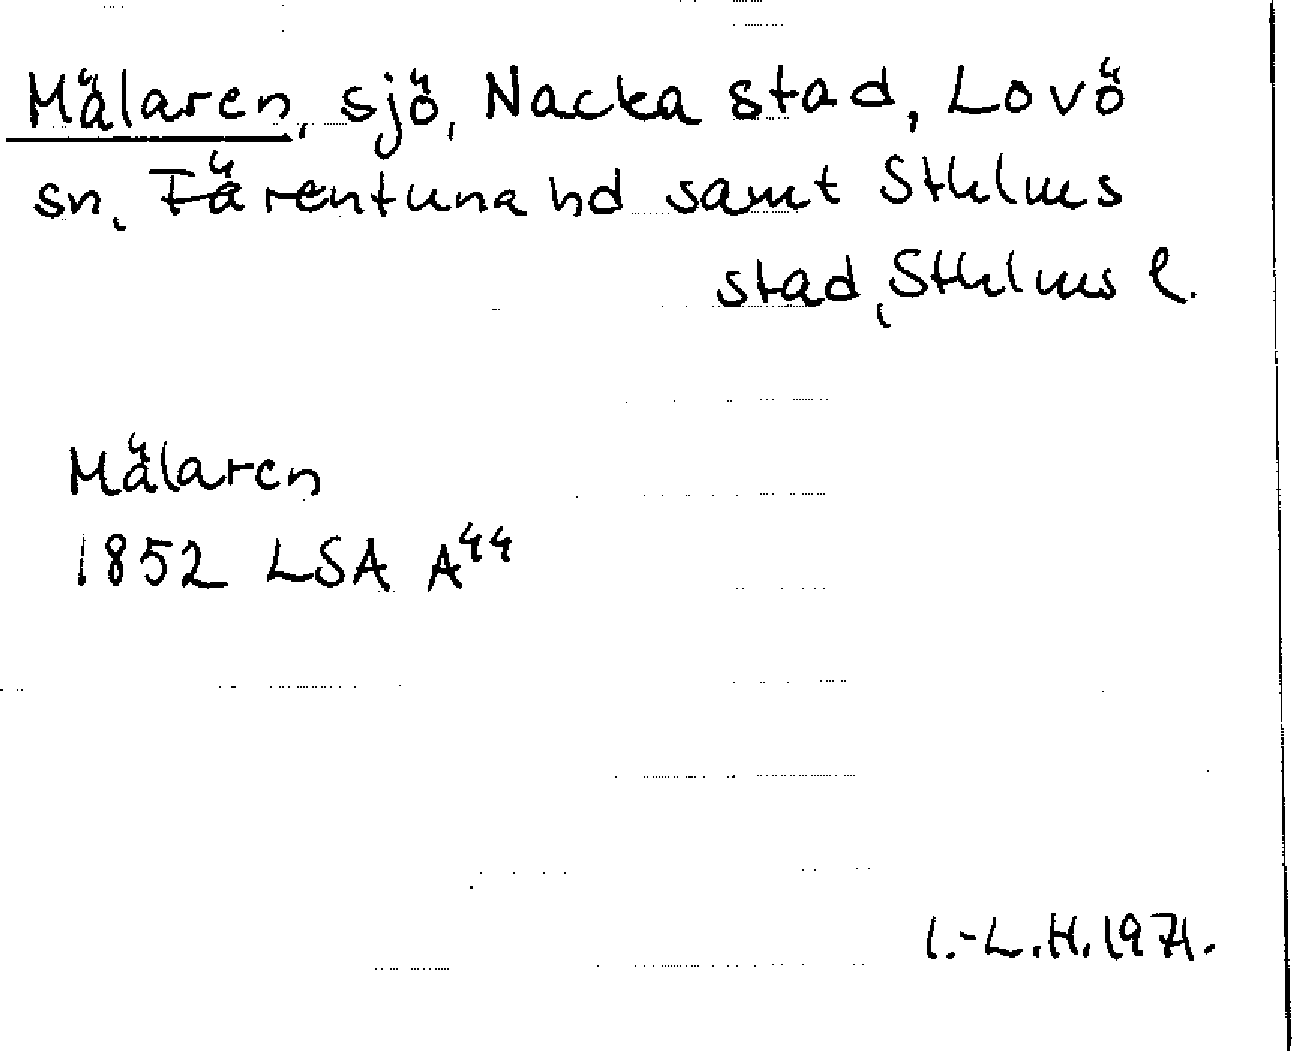 Mälaren, sjö, Nacka stad, Lovö
sn, Färentuna hd samt Sthlms
stad, Sthlms l.
Mälaren
1852 LSA A44
I.-L.H. 1971.